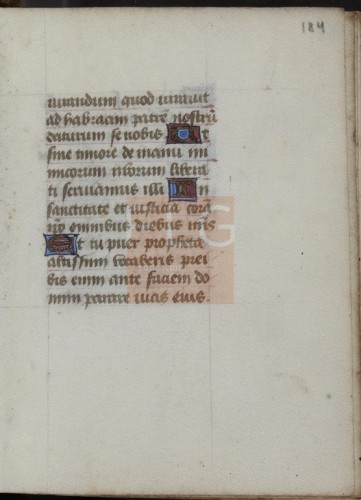 184
iurandum quod iuravit
ad habraam patrē nostrū
daturum se nobis Ut
sine timore de manu ini
micorum nrorum libera
ti serviamus illi In
sanctitate et iusticia corā
ipo omnibus diebus nris
Et tu puer propheta
altissimi vocaberis prei
bis enim ante faciem do
mini parare vias eius.